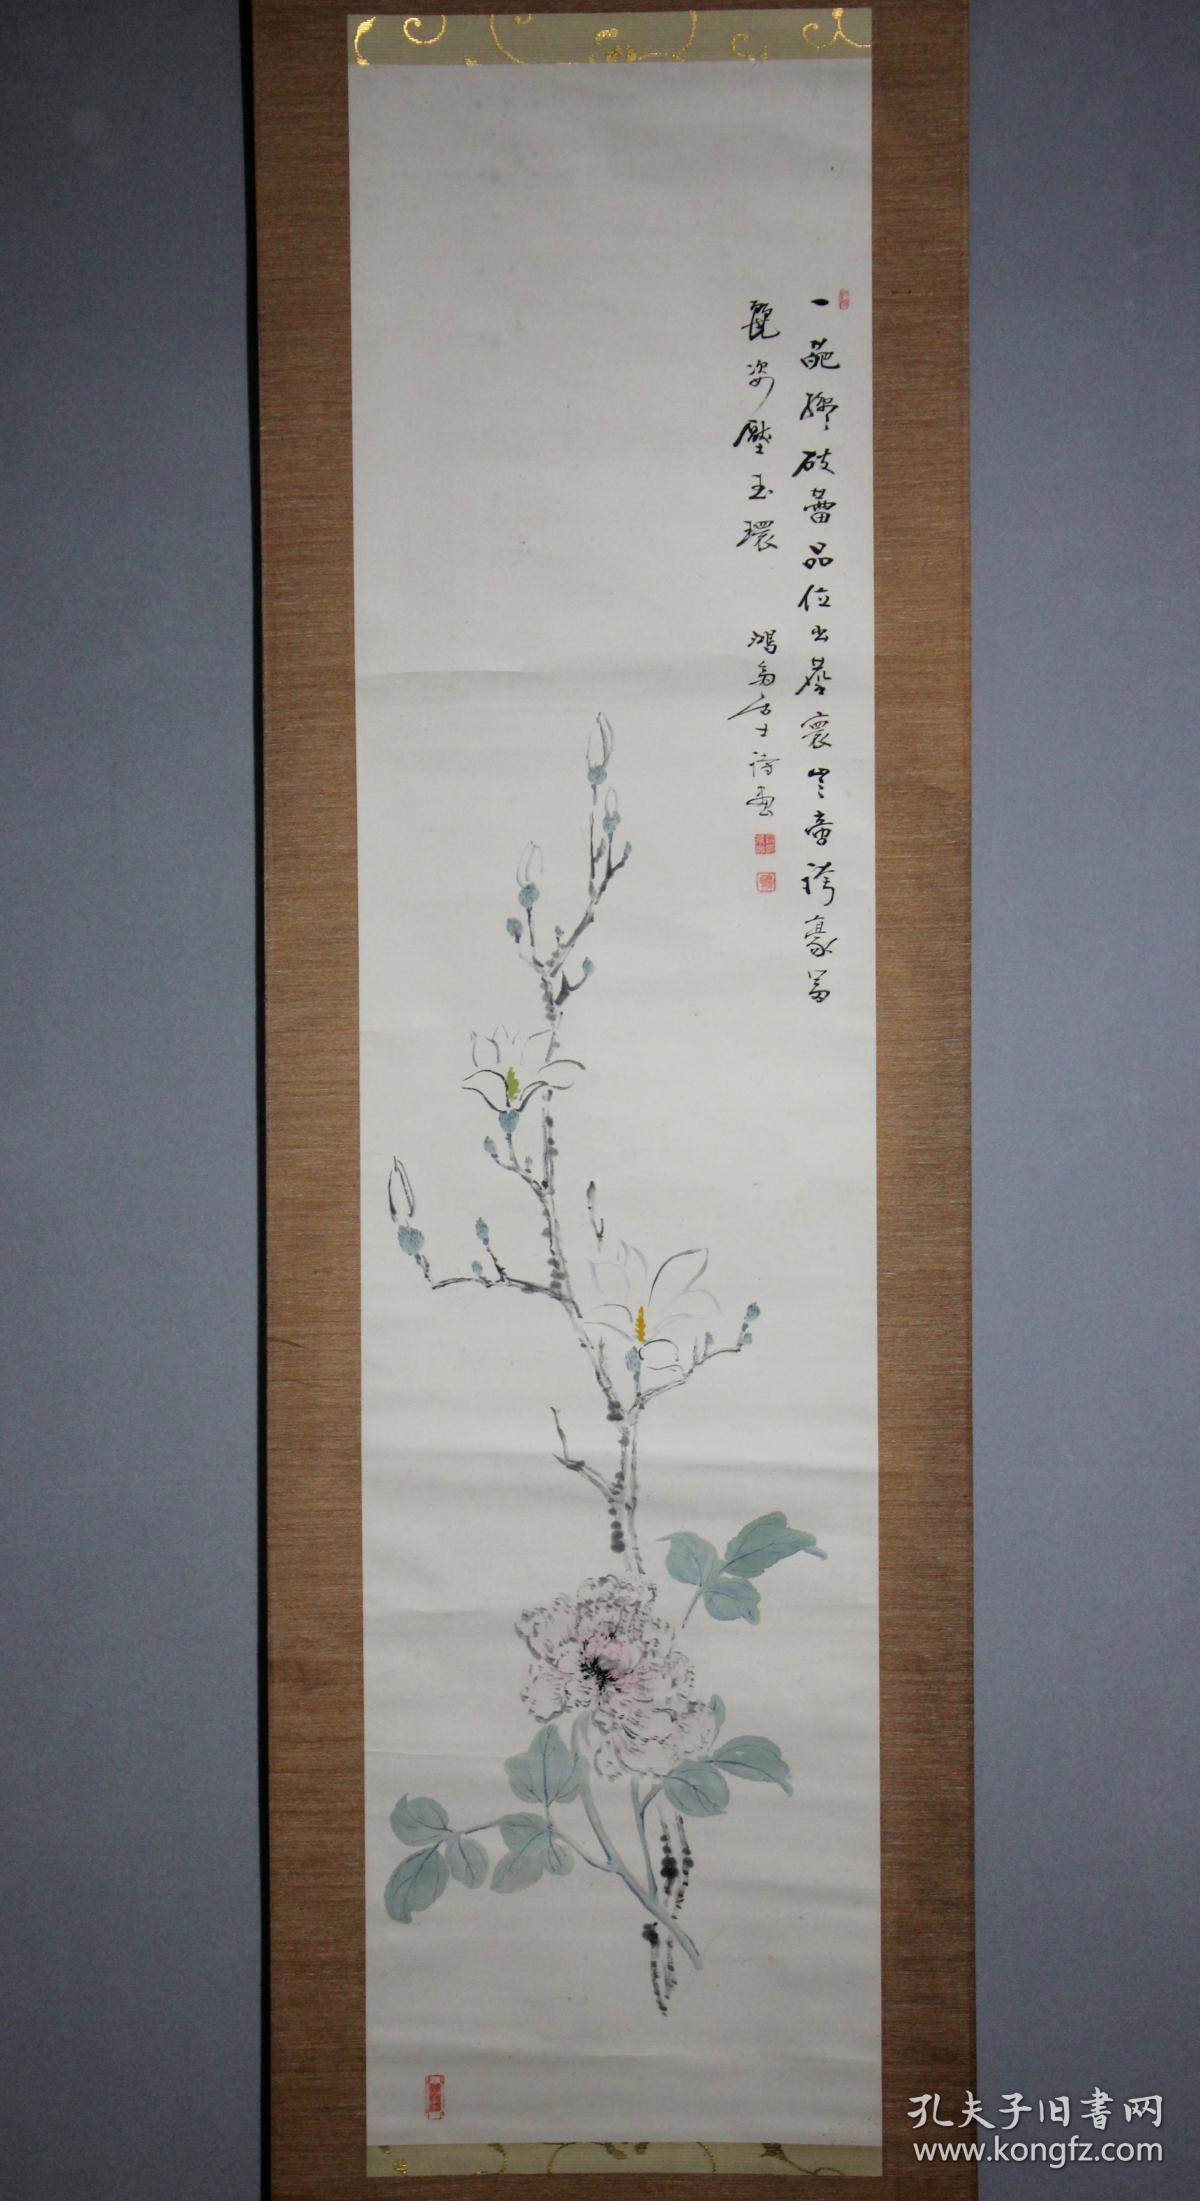 一葩纔破蕾品位出塵寰豈啻誇豪富
麗姿壓玉環 鴻翁居士詩畫
孔夫子旧书网
www.kongfz.com